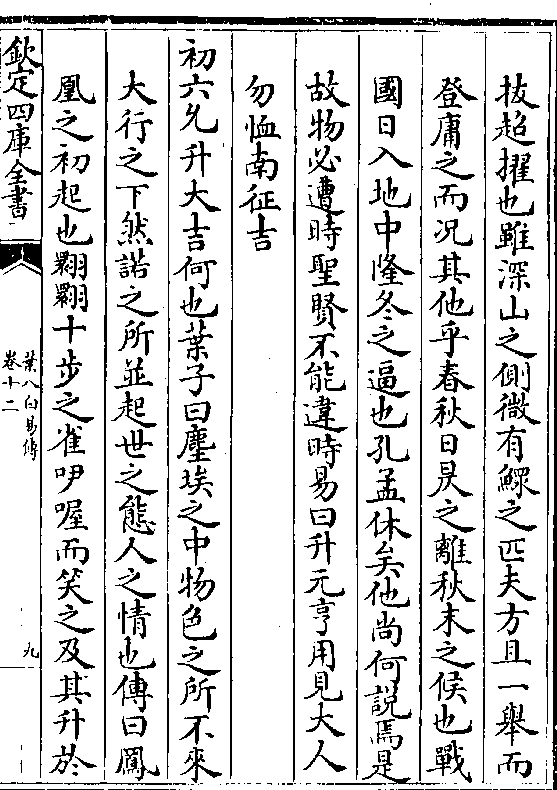 拔超擢也雖深山之側微有鰥之匹夫方且一舉而
登庸之而況其他乎春秋日昃之離秋末之候也戰
國日入地中隆冬之逼也孔孟休矣他尚何說焉是
故物必遭時聖賢不能違時易曰升元亨用見大人
勿恤南征吉
初六允升大吉何也葉子曰塵埃之中物色之所不來
大行之下然諾之所並起世之態人之情也傳曰鳳
凰之初起也翾翾十步之雀吚喔而笑之及其升於
欽定四庫全書
葉八白易傳
卷十二
九